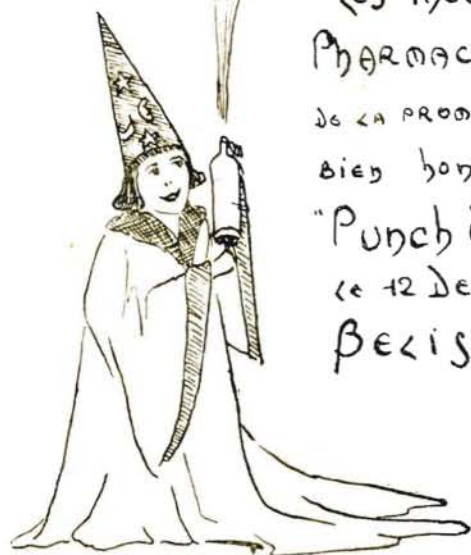 Pharmac
de la prom
bien hon
"Punch
le 12 De
Belis